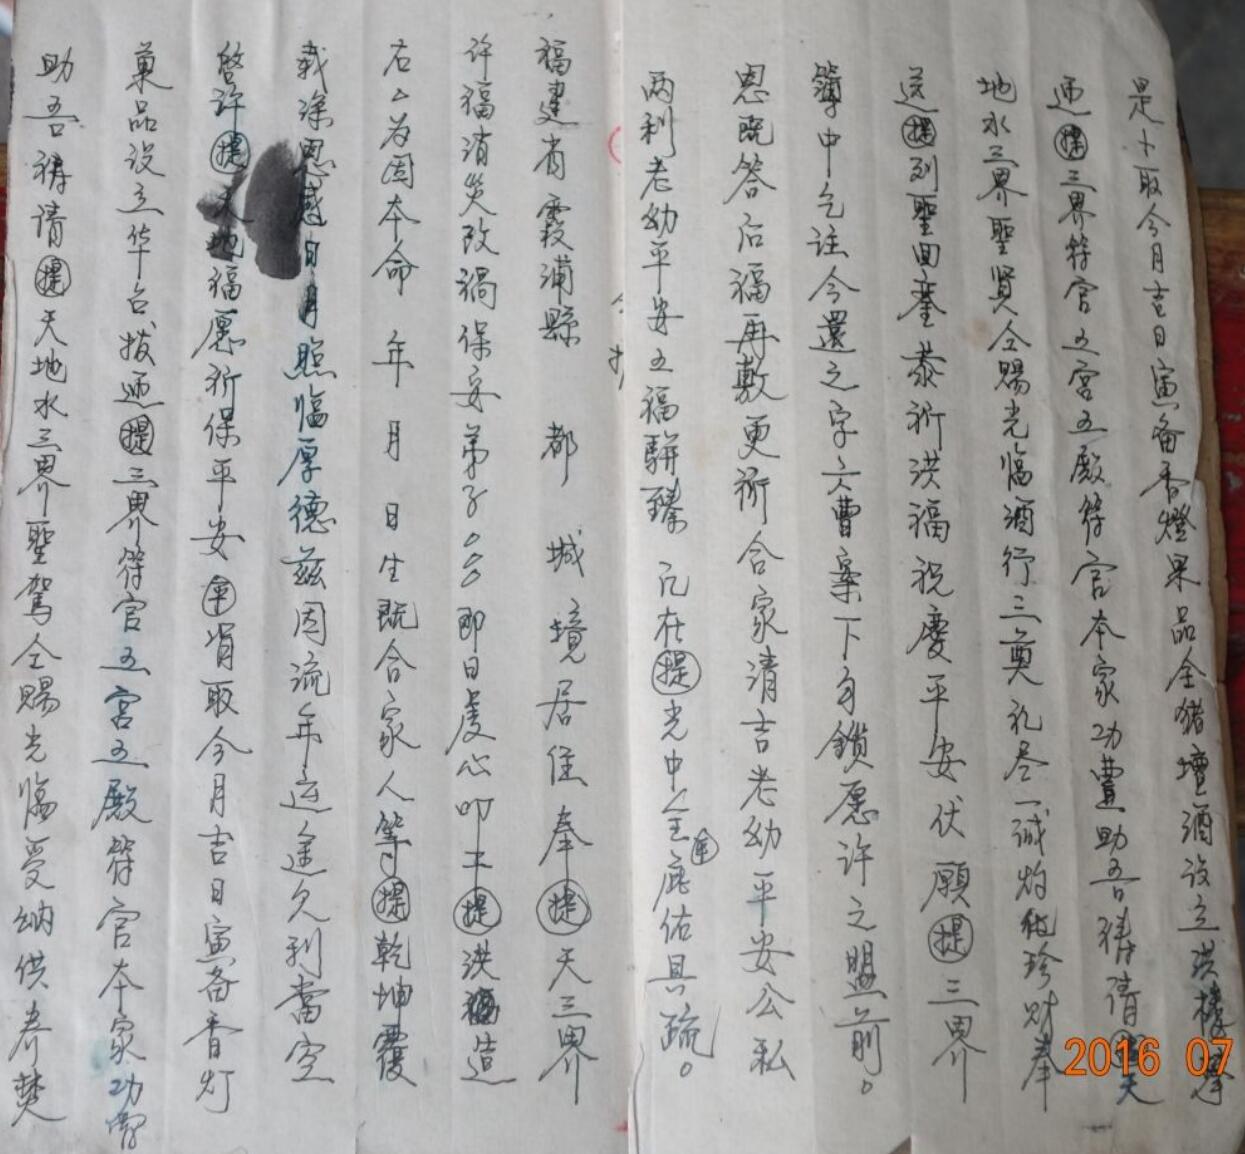 是卜取今月吉日寅备香燈果品全猪壇酒设立洪樓拳
逓提三界符官五宮五殿符官本家功曹助吾祷请提天
地水三界聖賢仝賜光临酒行三奠礼尽一诚灼化珍财奉
送提列聖回銮恭祈洪福祝慶平安伏願提三界
簿中乞注今還之字六曹案下勾鎖愿许之盟前。
恩既答后福再敷更祈合家清吉老幼平安公私
两利老幼平安五福駢臻凡在提光中全庇佑具疏。
福建省霞浦縣 都 城境居住奉提天三界
许福消災改禍保安弟子○○○即日虔心叩干提洪福造
右厶为因本命 年 月 日生既合家人等提乾坤覆
载深恩感日月照临厚德兹因流年运途欠利當空
啓许提天地福愿祈保平安申涓取今月吉日寅备香灯
菓品设立华台拔逓提三界符官五宮五殿符官本家功曹
助吾祷请提天地水三界聖駕仝賜光临受纳供养焚
2016 07